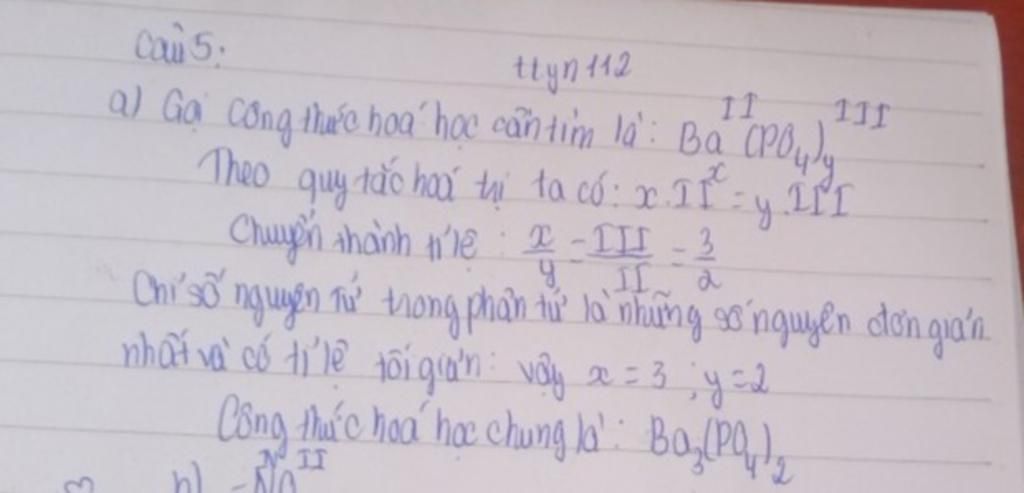 Câu 5:
ttyn112
a) Gọi công thức hoá học cần tìm là: Baₓ^II (PO₄)ᵧ^III
Theo quy tắc hoá trị ta có: x.II = y.III
Chuyển thành tỉ lệ: x/y = III/II = 3/2
Chỉ số nguyên tử trong phân tử là những số nguyên đơn giản
nhất và có tỉ lệ tối giản: vậy x = 3; y = 2
Công thức hoá học chung là: Ba₃(PO₄)₂
b)